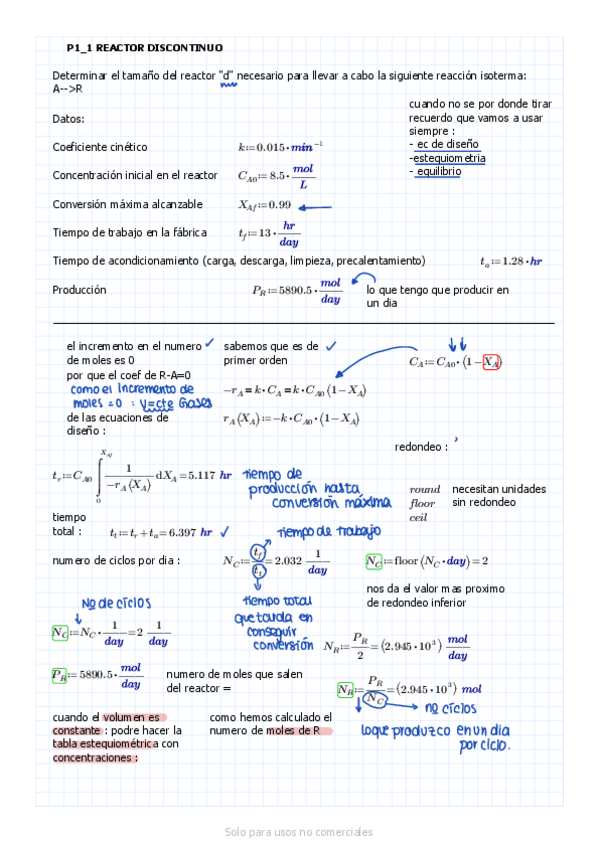 P1_1 REACTOR DISCONTINUO
Determinar el tamaño del reactor "d" necesario para llevar a cabo la siguiente reacción isoterma:
A-->R
cuando no se por donde tirar
recuerdo que vamos a usar
siempre :
- ec de diseño
-estequiometria
- equilibrio
Datos:
Coeficiente cinético k:=0.015•min⁻¹
Concentración inicial en el reactor C_A0:=8.5•mol/L
Conversión máxima alcanzable X_Af:=0.99
Tiempo de trabajo en la fábrica t_f:=13•hr/day
Tiempo de acondicionamiento (carga, descarga, limpieza, precalentamiento) t_a:=1.28•hr
Producción P_R:=5890.5•mol/day lo que tengo que producir en
un dia
el incremento en el numero
de moles es 0
por que el coef de R-A=0
como el incremento de
moles =0 : V=cte Gases
de las ecuaciones de
diseño :
sabemos que es de
primer orden
C_A:=C_A0•(1-X_A)
-r_A=k•C_A=k•C_A0(1-X_A)
r_A(X_A):=-k•C_A0•(1-X_A)
redondeo :
t_r:=C_A0 ∫₀^X_Af 1/(-r_A(X_A)) dX_A=5.117 hr
tiempo de
producción hasta
conversión máxima
round necesitan unidades
floor sin redondeo
ceil
tiempo
total : t_t:=t_r+t_a=6.397 hr
tiempo de trabajo
numero de ciclos por dia : N_C:=t_f/t_t=2.032 1/day N_C:=floor(N_C•day)=2
nos da el valor mas proximo
de redondeo inferior
Nº de ciclos
tiempo total
que tarda en
conseguir
conversión
N_C:=N_C•1/day=2 1/day
N_R:=P_R/2=(2.945•10³) mol/day
P_R:=5890.5•mol/day
numero de moles que salen
del reactor =
N_R:=P_R/N_C=(2.945•10³) mol
no ciclos
lo que produzco en un dia
por ciclo.
cuando el volumen es
constante : podre hacer la
tabla estequiométrica con
concentraciones :
como hemos calculado el
numero de moles de R
Solo para usos no comerciales